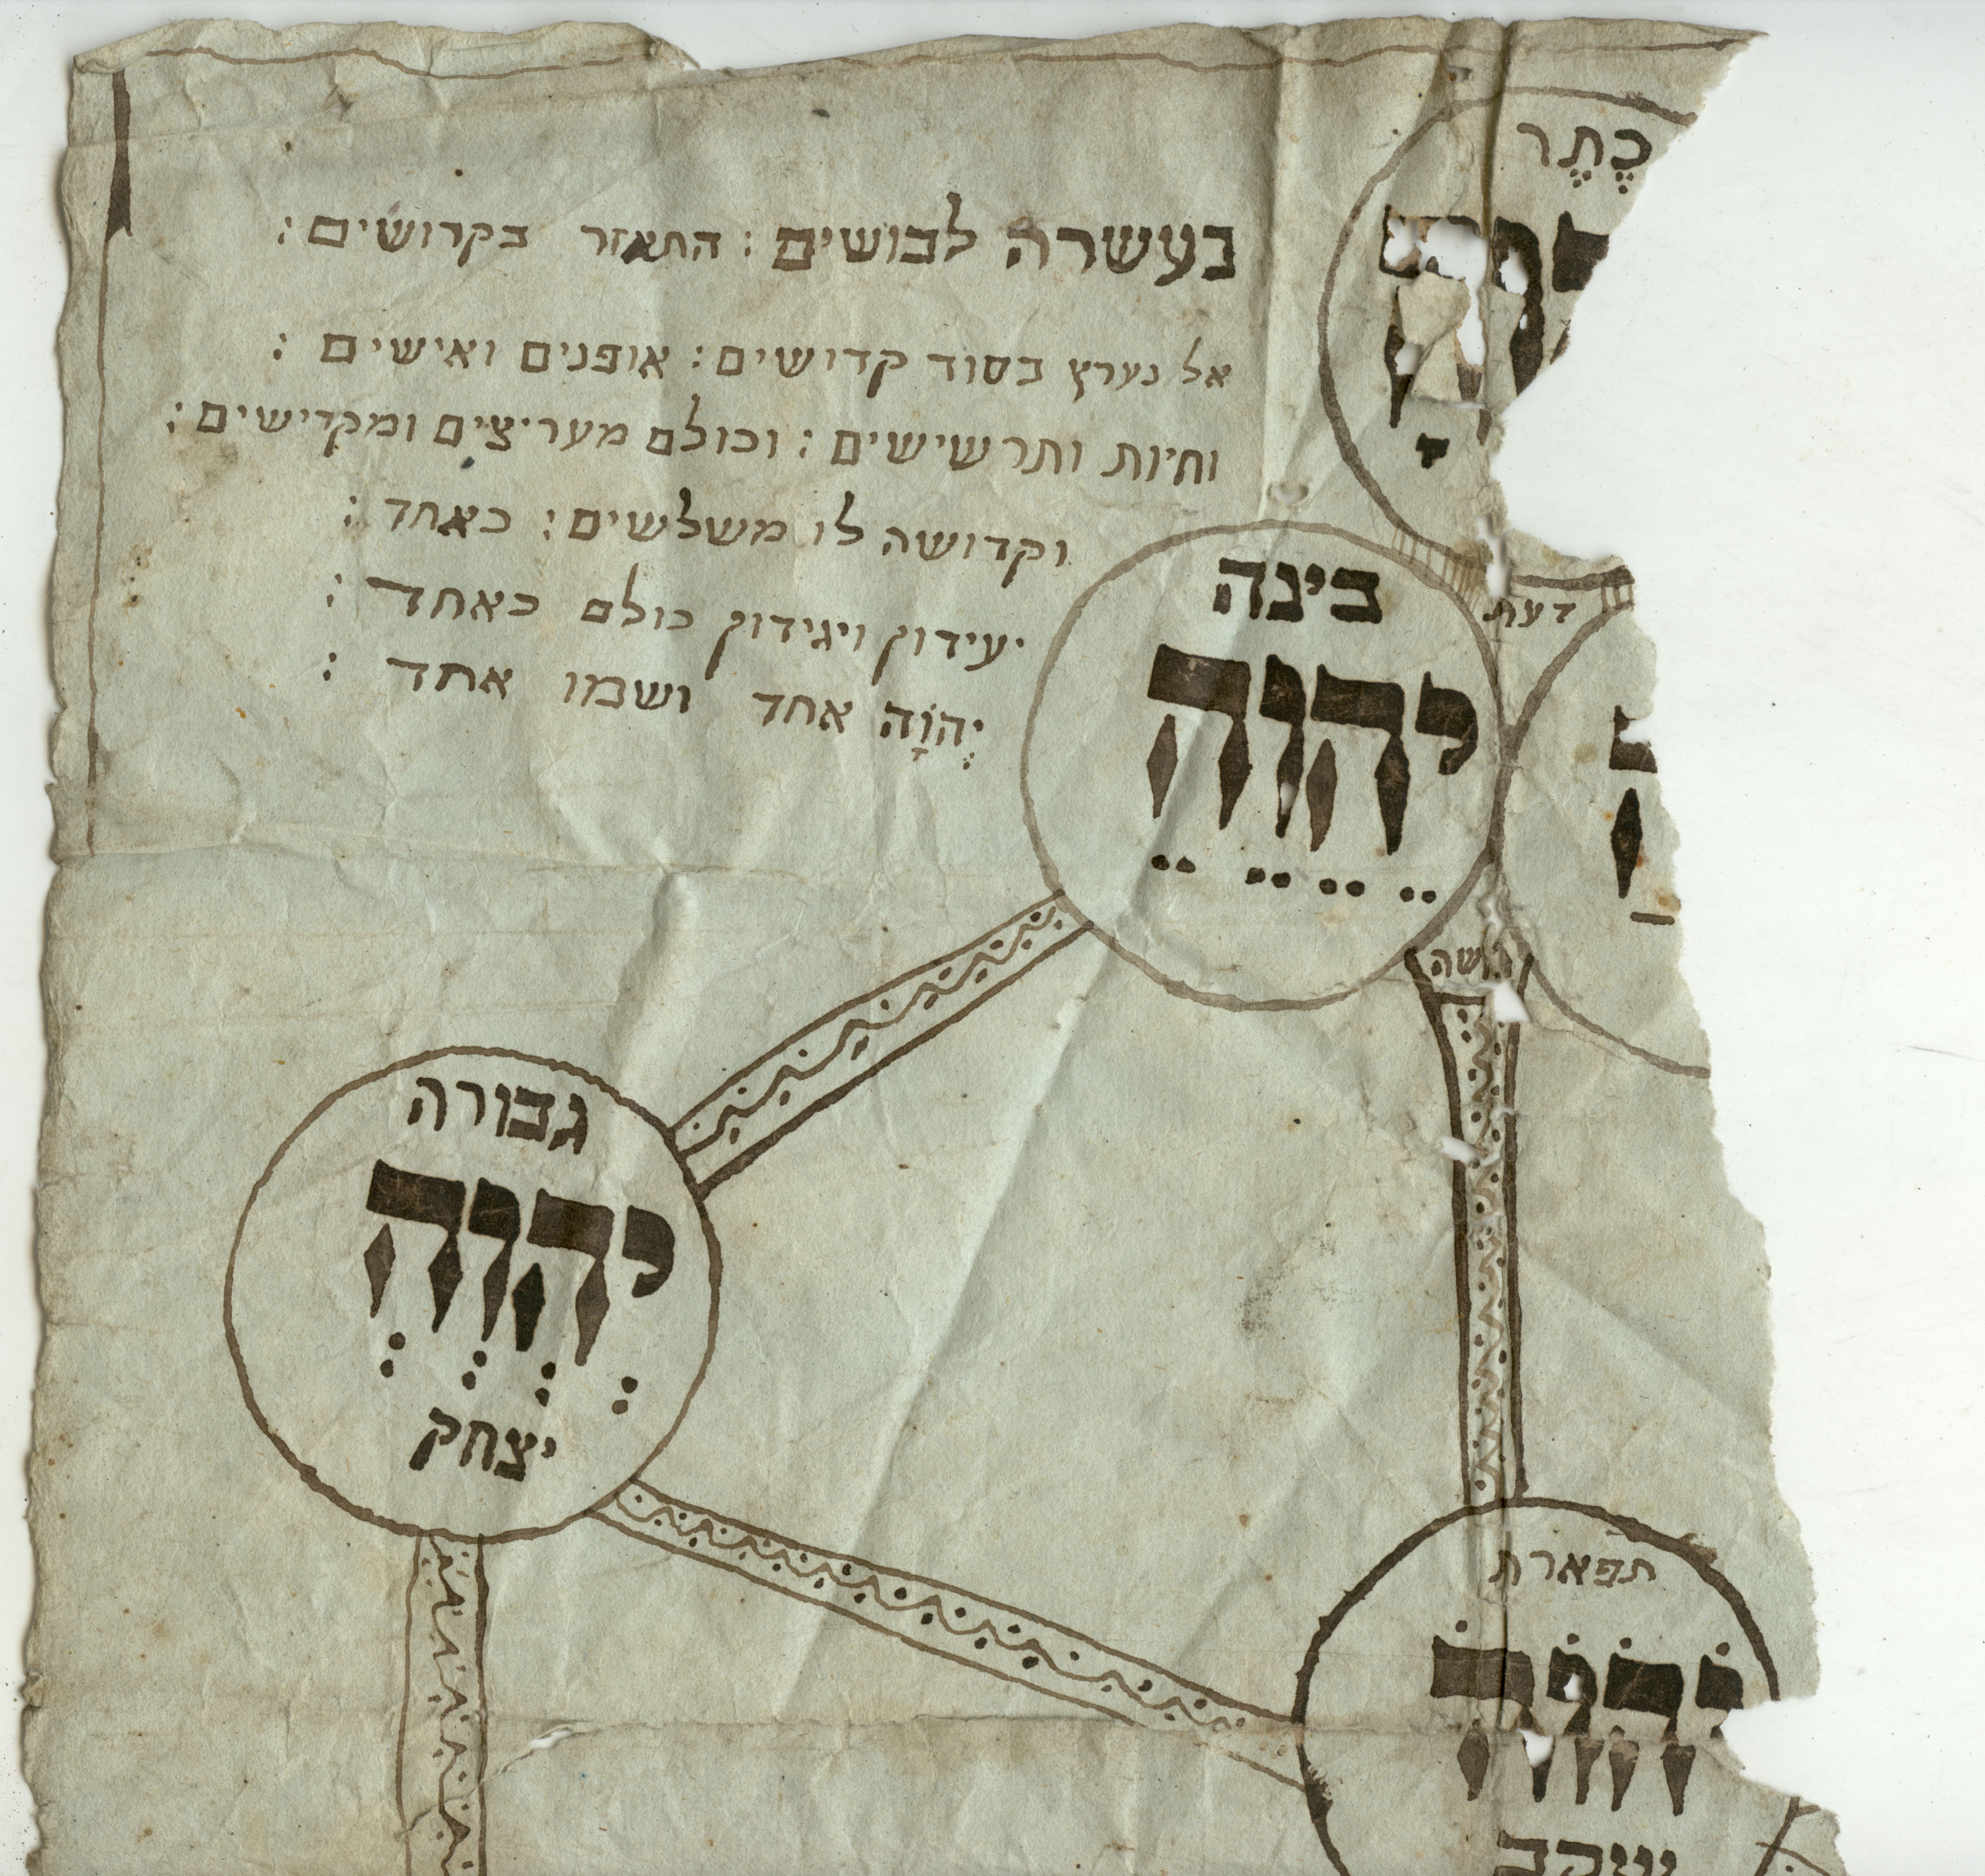 כֶּתֶר
בעשרה לבושים : התאזר בקדושים :
אל נערץ בסוד קדושים : אופנים ואישים :
וחיות ותרשישים : וכולם מעריצים ומקדישים :
וקדושה לו משלשים : כאחד :
יעידון ויגידון כולם כאחד :
יְהוָֹה אחד ושמו אחד :
דעת
בינה
יֵהֵוֵהֵ
משה
גבורה
יְהְוְהְ
יצחק
תפארת
יֹהֹוֹהֹ
יעקב